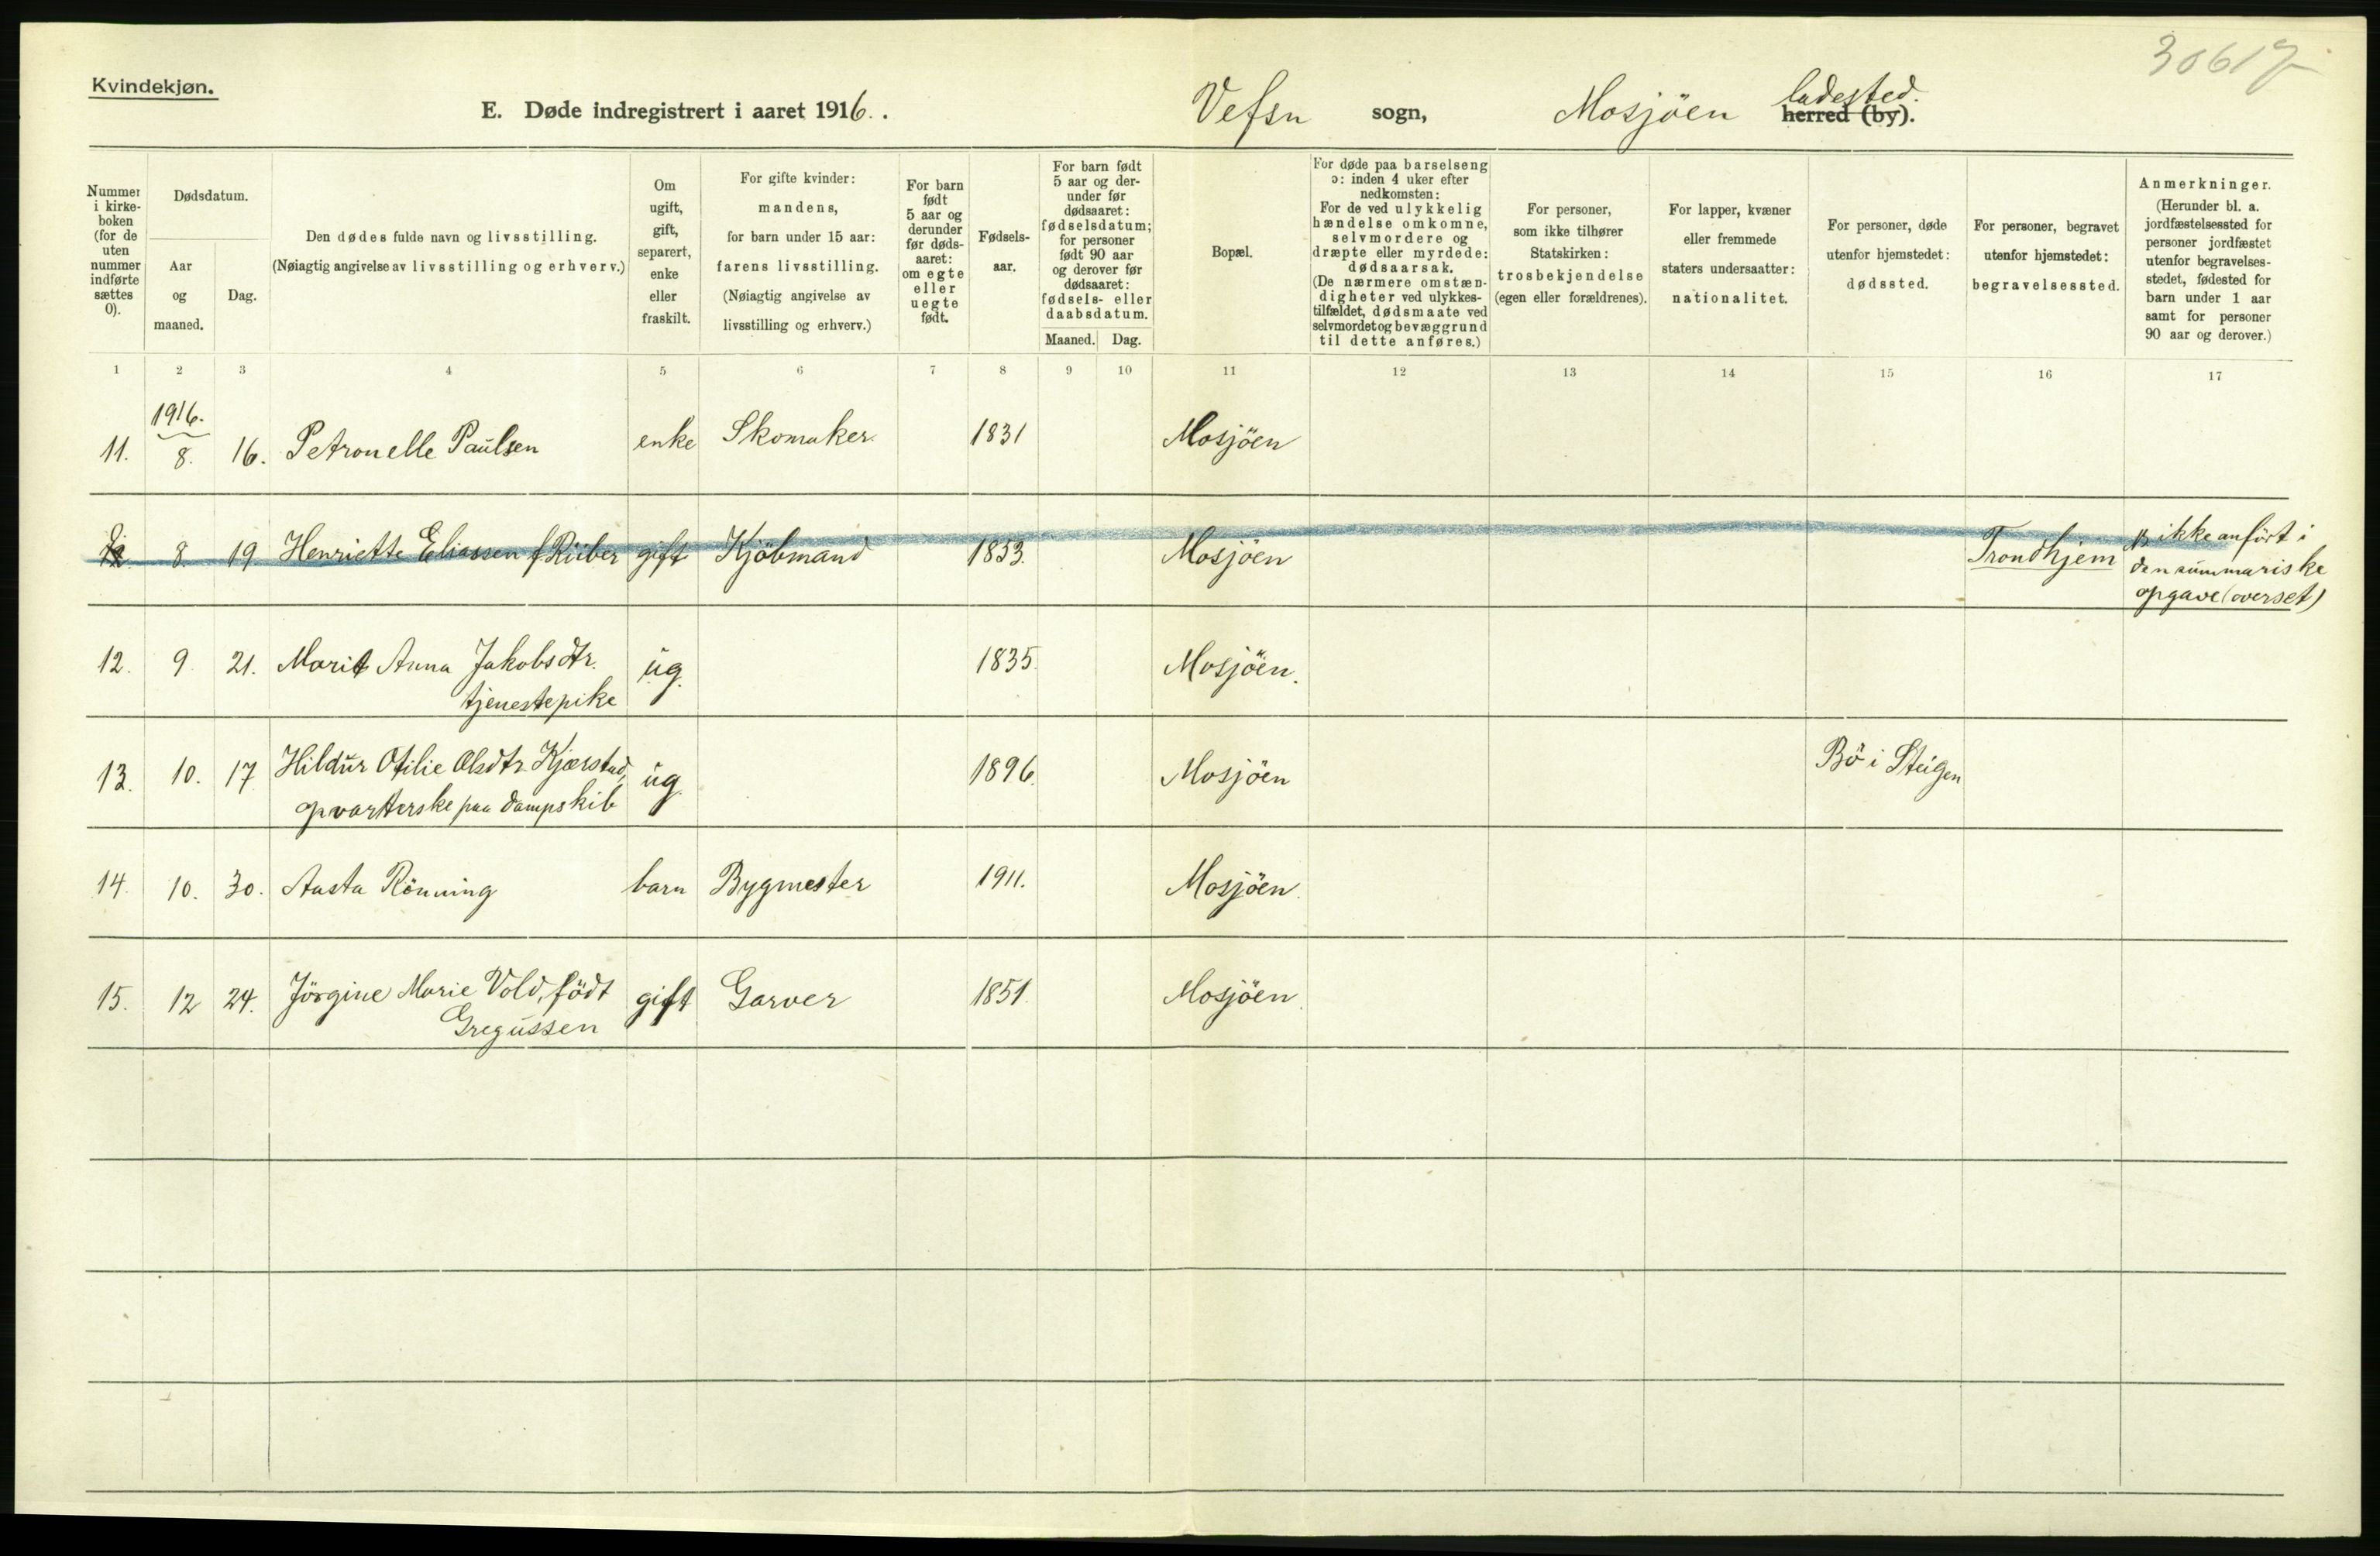 30617
Kvindekjøn.
E. Døde indregistrert i aaret 1916.
Vefsn sogn, Mosjöen ladested.
herred (by).
Nummer
i kirke-
boken
(for de
uten
nummer
indførte
sættes
0).
Dødsdatum.
Aar
og
maaned.
Dag.
Den dødes fulde navn og livsstilling.
(Nøiagtig angivelse av livsstilling og erhverv.)
Om
ugift,
gift,
separert,
enke
eller
fraskilt.
For gifte kvinder:
mandens,
for barn under 15 aar:
farens livsstilling.
(Nøiagtig angivelse av
livsstilling og erhverv.)
For barn
født
5 aar og
derunder
før døds-
aaret:
om egte
eller
uegte
født.
Fødsels-
aar.
For barn født
5 aar og der-
under før
dødsaaret:
fødselsdatum;
for personer
født 90 aar
og derover før
dødsaaret:
fødsels- eller
daabsdatum.
Maaned. Dag.
Bopæl.
For døde paa barselseng
ɔ: inden 4 uker efter
nedkomsten:
For de ved ulykkelig
hændelse omkomne,
selvmordere og
dræpte eller myrdede:
dødsaarsak.
(De nærmere omstæn-
digheter ved ulykkes-
tilfældet, dødsmaate ved
selvmordet og bevæggrund
til dette anføres.)
For personer,
som ikke tilhører
Statskirken:
trosbekjendelse
(egen eller forældrenes).
For lapper, kvæner
eller fremmede
staters undersaatter:
nationalitet.
For personer, døde
utenfor hjemstedet:
dødssted.
For personer, begravet
utenfor hjemstedet:
begravelsessted.
Anmerkninger.
(Herunder bl. a.
jordfæstelsessted for
personer jordfæstet
utenfor begravelses-
stedet, fødested for
barn under 1 aar
samt for personer
90 aar og derover.)
1 2 3 4 5 6 7 8 9 10 11 12 13 14 15 16 17
1916.
11. 8. 16. Petronelle Paulsen enke Skomaker. 1831 Mosjöen
8. 19. Henriette Eliassen f Riiber gift Kjöbmand 1853. Mosjöen Trondhjem ikke anfört i
den summariske
opgave (overset)
12. 9. 21. Marit Anna Jakobsdtr. ug. 1835. Mosjöen.
tjenestepike
13. 10. 17 Hildur Otilie Olsdtr. Kjærstad, ug. 1896. Mosjöen Bö i Steigen
opvarterske paa dampskib
14. 10. 30. Aasta Rönning barn Bygmester 1911. Mosjöen.
15. 12 24. Jörgine Marie Vold, födt gift Garver 1851. Mosjöen.
Gregussen